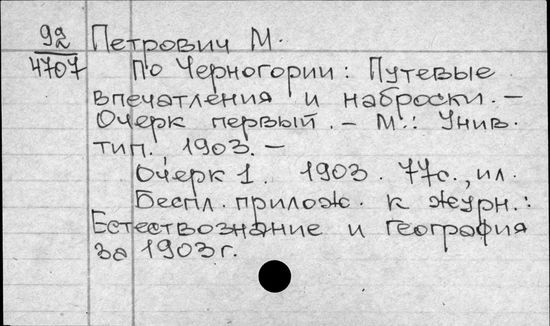 92 Петрович М.
4707 По Черногории: Путевые
впечатления и наброски. –
Очерк первый. – М.: Унив.
тип., 1903. –
Очерк 1. 1903. 77с., ил.
Беспл. прилож. к журн.:
Естествознание и география
за 1903г.